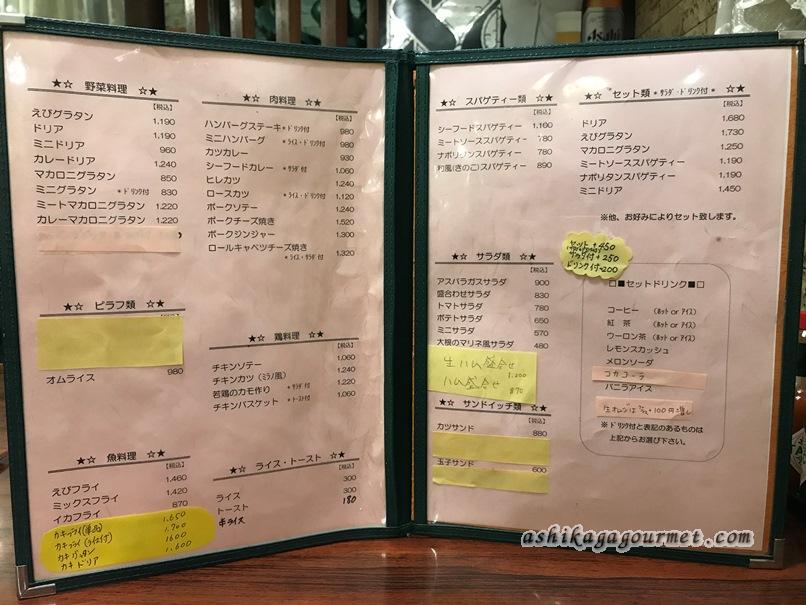 ★☆ 野菜料理 ☆★
【税込】
えびグラタン 1,190
ドリア 1,190
ミニドリア 960
カレードリア 1,240
マカロニグラタン 850
ミニグラタン *ドリンク付 830
ミートマカロニグラタン 1,220
カレーマカロニグラタン 1,220
★☆ ピラフ類 ☆★
オムライス 980
★☆ 魚料理 ☆★
【税込】
えびフライ 1,460
ミックスフライ 1,420
イカフライ 870
カキフライ(単品) 1,650
カキフライ(ライス付) 1,700
カキグラタン 1600
カキドリア 1,600
★☆ 肉料理 ☆★
【税込】
ハンバーグステーキ*ドリンク付 980
ミニハンバーグ *ライス・ドリンク付 980
カツカレー 930
シーフードカレー *サラダ付 1,060
ヒレカツ 1,240
ロースカツ *ライス・ドリンク付 1,120
ポークソテー 1,240
ポークチーズ焼き 1,520
ポークジンジャー 1,300
ロールキャベツチーズ焼き 1,320
*ライス・サラダ付
★☆ 鶏料理 ☆★
【税込】
チキンソテー 1,060
チキンカツ(ミラノ風) 1,240
若鶏のカモ作り *サラダ付 1,220
チキンバスケット *トースト付 1,060
★☆ ライス・トースト ☆★
【税込】
ライス 300
トースト 300
半ライス 180
★☆ スパゲティー類 ★☆
【税込】
シーフードスパゲティー 1,160
ミートソーススパゲティー 780
ナポリタンスパゲティー 780
和風(きのこ)スパゲティー 890
★☆ サラダ類 ★☆
【税込】
アスパラガスサラダ 900
盛合わせサラダ 830
トマトサラダ 780
ポテトサラダ 650
ミニサラダ 570
大根のマリネ風サラダ 480
生ハム盛合せ 1,200
ハム盛合せ 870
★☆ サンドイッチ類 ★☆
カツサンド 880
玉子サンド 600
★☆ セット類 *サラダ・ドリンク付* ★☆
【税込】
ドリア 1,680
えびグラタン 1,730
マカロニグラタン 1,250
ミートソーススパゲティー 1,190
ナポリタンスパゲティー 1,190
ミニドリア 1,450
※他、お好みによりセット致します。
セット +450
サラダ付 +250
ドリンク付+200
□■セットドリンク■□
コーヒー (ホット or アイス)
紅 茶 (ホット or アイス)
ウーロン茶 (ホット or アイス)
レモンスカッシュ
メロンソーダ
コカコーラ
バニラアイス
※ドリンク付と表記のあるものは
上記からお選び下さい。
Asahi
ashikagagourmet.com